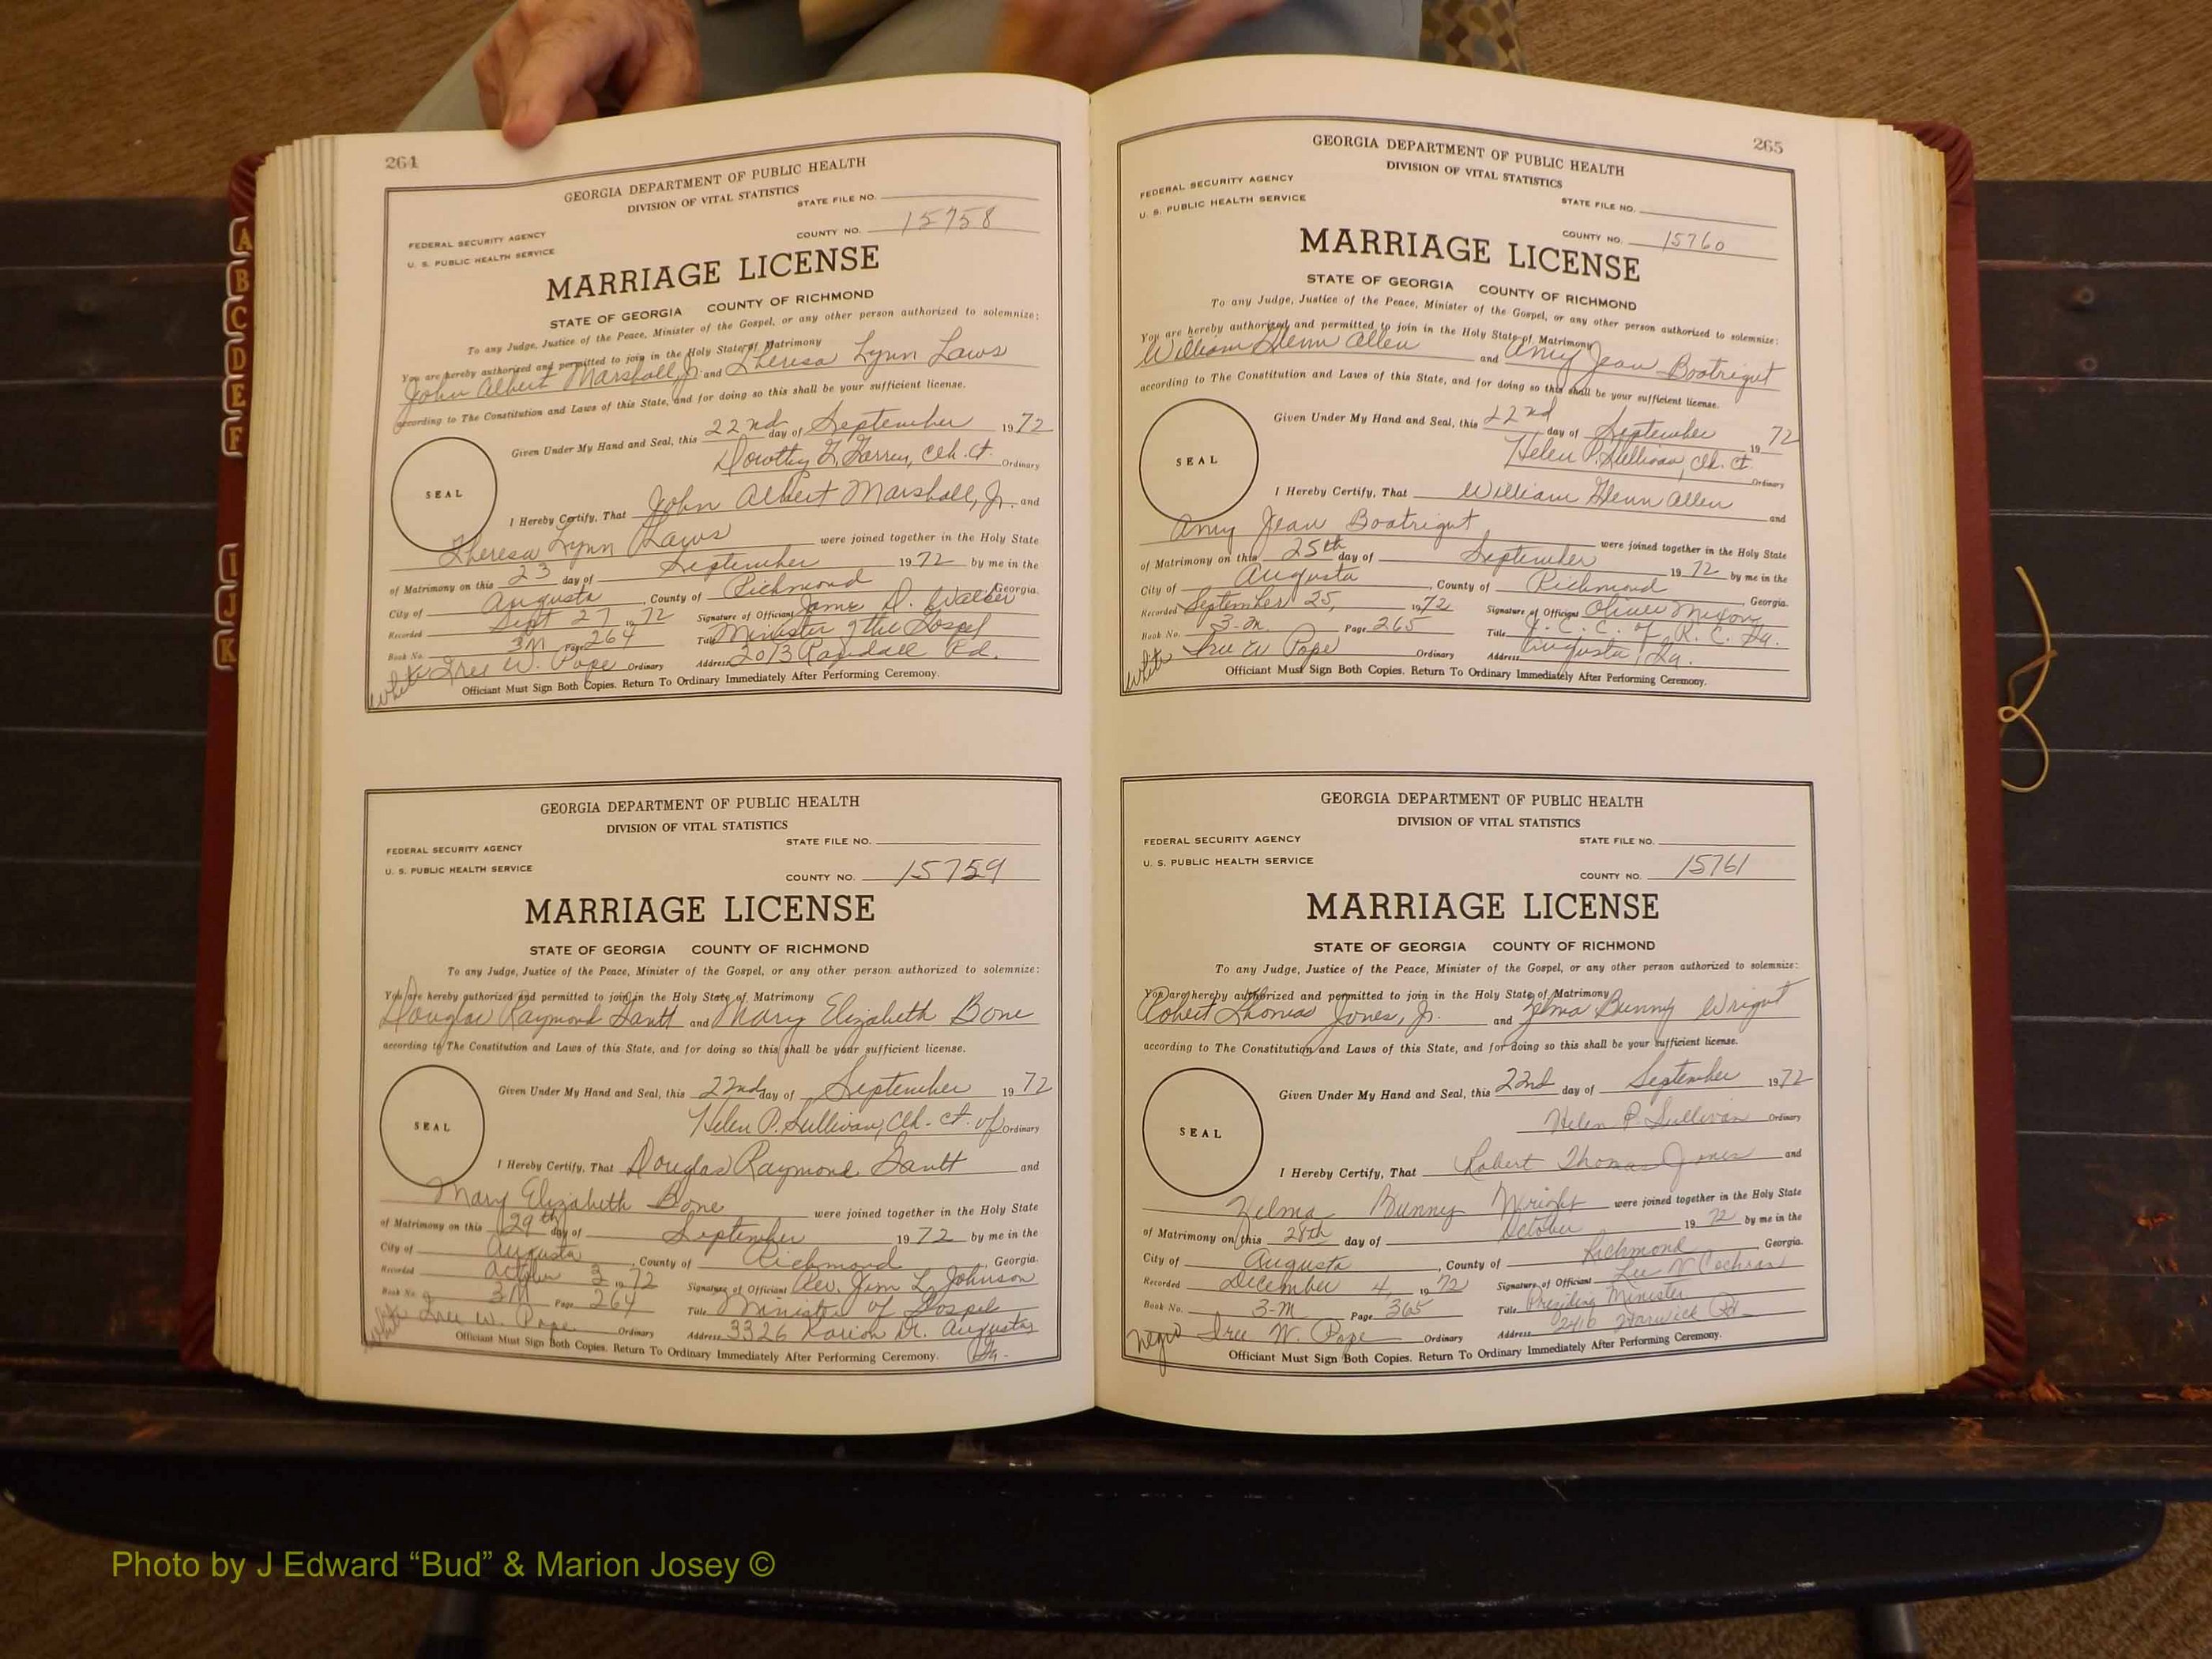 A
B
C
D
E
F
I
J
K
264
GEORGIA DEPARTMENT OF PUBLIC HEALTH
DIVISION OF VITAL STATISTICS
STATE FILE NO.
FEDERAL SECURITY AGENCY
U. S. PUBLIC HEALTH SERVICE
COUNTY NO. 15758
MARRIAGE LICENSE
STATE OF GEORGIA COUNTY OF RICHMOND
To any Judge, Justice of the Peace, Minister of the Gospel, or any other person authorized to solemnize:
You are hereby authorized and permitted to join in the Holy State of Matrimony
John Albert Marshall, Jr. and Theresa Lynn Laws
according to The Constitution and Laws of this State, and for doing so this shall be your sufficient license.
Given Under My Hand and Seal, this 22nd day of September 1972
Clk. Ct. Ordinary
SEAL
I Hereby Certify, That John Albert Marshall, Jr. and
Theresa Lynn Laws were joined together in the Holy State
of Matrimony on this 23 day of September 1972 by me in the
City of Augusta, County of Richmond Georgia.
Recorded Sept 27 1972 Signature of Officiant James D. Walker
Book No. 3M Page 264 Title Minister of the Gospel
white Iree W. Pope Ordinary Address 2013 Randall Rd.
Officiant Must Sign Both Copies. Return To Ordinary Immediately After Performing Ceremony.
GEORGIA DEPARTMENT OF PUBLIC HEALTH
DIVISION OF VITAL STATISTICS
STATE FILE NO.
FEDERAL SECURITY AGENCY
U. S. PUBLIC HEALTH SERVICE
COUNTY NO. 15759
MARRIAGE LICENSE
STATE OF GEORGIA COUNTY OF RICHMOND
To any Judge, Justice of the Peace, Minister of the Gospel, or any other person authorized to solemnize:
You are hereby authorized and permitted to join in the Holy State of Matrimony
Douglas Raymond Gantt and Mary Elizabeth Bone
according to The Constitution and Laws of this State, and for doing so this shall be your sufficient license.
Given Under My Hand and Seal, this 22nd day of September 1972
Helen P. Sullivan, Clk. Ct. of Ordinary
SEAL
I Hereby Certify, That Douglas Raymond Gantt and
Mary Elizabeth Bone were joined together in the Holy State
of Matrimony on this 29th day of September 1972 by me in the
City of Augusta, County of Richmond, Georgia.
Recorded October 3 1972 Signature of Officiant Rev. Jim L. Johnson
Book No. 3M Page 264 Title Minister of Gospel
white Iree W. Pope Ordinary Address 3326 Karion Dr. Augusta,
Ga.
Officiant Must Sign Both Copies. Return To Ordinary Immediately After Performing Ceremony.
265
GEORGIA DEPARTMENT OF PUBLIC HEALTH
DIVISION OF VITAL STATISTICS
FEDERAL SECURITY AGENCY
U. S. PUBLIC HEALTH SERVICE
STATE FILE NO.
COUNTY NO. 15760
MARRIAGE LICENSE
STATE OF GEORGIA COUNTY OF RICHMOND
To any Judge, Justice of the Peace, Minister of the Gospel, or any other person authorized to solemnize:
You are hereby authorized and permitted to join in the Holy State of Matrimony
William Glenn Allen and Amy Jean Boatright
according to The Constitution and Laws of this State, and for doing so this shall be your sufficient license.
Given Under My Hand and Seal, this 22nd day of September 1972
Helen P. Sullivan, Clk. Ct. Ordinary
SEAL
I Hereby Certify, That William Glenn Allen and
Amy Jean Boatright were joined together in the Holy State
of Matrimony on this 25th day of September 1972 by me in the
City of Augusta, County of Richmond, Georgia.
Recorded September 25, 1972 Signature of Officiant Oliver Mixon
Book No. 3-M. Page 265 Title C. C. of R. C. Ga.
white Iree W Pope Ordinary Address Augusta, Ga.
Officiant Must Sign Both Copies. Return To Ordinary Immediately After Performing Ceremony.
GEORGIA DEPARTMENT OF PUBLIC HEALTH
DIVISION OF VITAL STATISTICS
FEDERAL SECURITY AGENCY
STATE FILE NO.
U. S. PUBLIC HEALTH SERVICE
COUNTY NO. 15761
MARRIAGE LICENSE
STATE OF GEORGIA COUNTY OF RICHMOND
To any Judge, Justice of the Peace, Minister of the Gospel, or any other person authorized to solemnize:
You are hereby authorized and permitted to join in the Holy State of Matrimony
Robert Thomas Jones, Jr. and Zelma Bunny Wright
according to The Constitution and Laws of this State, and for doing so this shall be your sufficient license.
Given Under My Hand and Seal, this 22nd day of September 1972
Helen P. Sullivan Ordinary
SEAL
I Hereby Certify, That Robert Thomas Jones and
Zelma Bunny Wright were joined together in the Holy State
of Matrimony on this 28th day of October 1972 by me in the
City of Augusta, County of Richmond, Georgia.
Recorded December 4 1972 Signature of Officiant Lee N Cochran
Book No. 3-M Page 365 Title Presiding Minister
negro Iree W. Pope Ordinary Address 2416 Warwick
Officiant Must Sign Both Copies. Return To Ordinary Immediately After Performing Ceremony.
Photo by J Edward “Bud” & Marion Josey ©